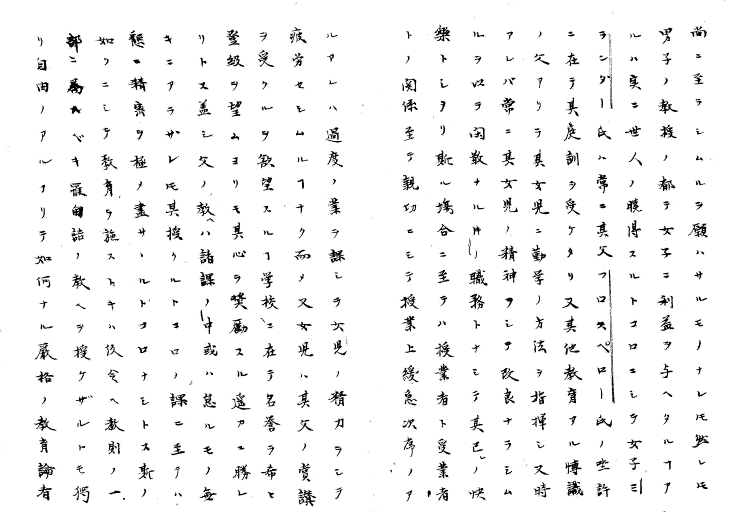 尚ニ至ラシムルヲ願ハサルモノナレ𪜈然レ𪜈
男子ノ教授ノ都テ女子ニ利益ヲ与ヘタルヿア
ルハ実ニ世人ノ暁得スルトコロニシテ女子ミ
ランダー氏ハ常ニ其父フロスペロー氏ノ坐許
ニ在テ其庭訓ヲ受ケタリ又其他教育アル博識
ノ父アリテ其女児ニ勤学ノ方法ヲ指揮シ又時
アレバ常ニ其女児ノ精神ヲシテ改良ナラシム
ルヲ以テ閑散ナル時ノ職務トナシテ其己ノ快
樂トシタリ斯ル塲合ニ至テハ授業者ト受業者
トノ関係至テ親切ニシテ授業上緩急次序ノア
ルアレハ過度ノ業ヲ課シテ女児ノ精力ヲシテ
疲労セシムルヿナク而メ又女児ハ其父ノ賞讃
ヲ受クルヲ欲望スルヿ学校ニ在テ名誉ヲ希ヒ
登級ヲ望ムヨリモ其心ヲ奨励スル遥カニ勝レ
リトス蓋シ父ノ教ハ諸課ノ中或ハ怠ルモノ毎
キニアラザレ𪜈其授クルトコロノ課ニ至テハ
懇ニ精密ヲ極メ盡サヽルトコロナシトス斯ノ
如クニシテ教育ヲ施ストキハ仮令ヘ教則ノ一
部ニ属スベキ羅甸語ノ教ヘヲ授ケザルトモ獨
リ自由ノアルアリテ如何ナル厳格ノ教育論者